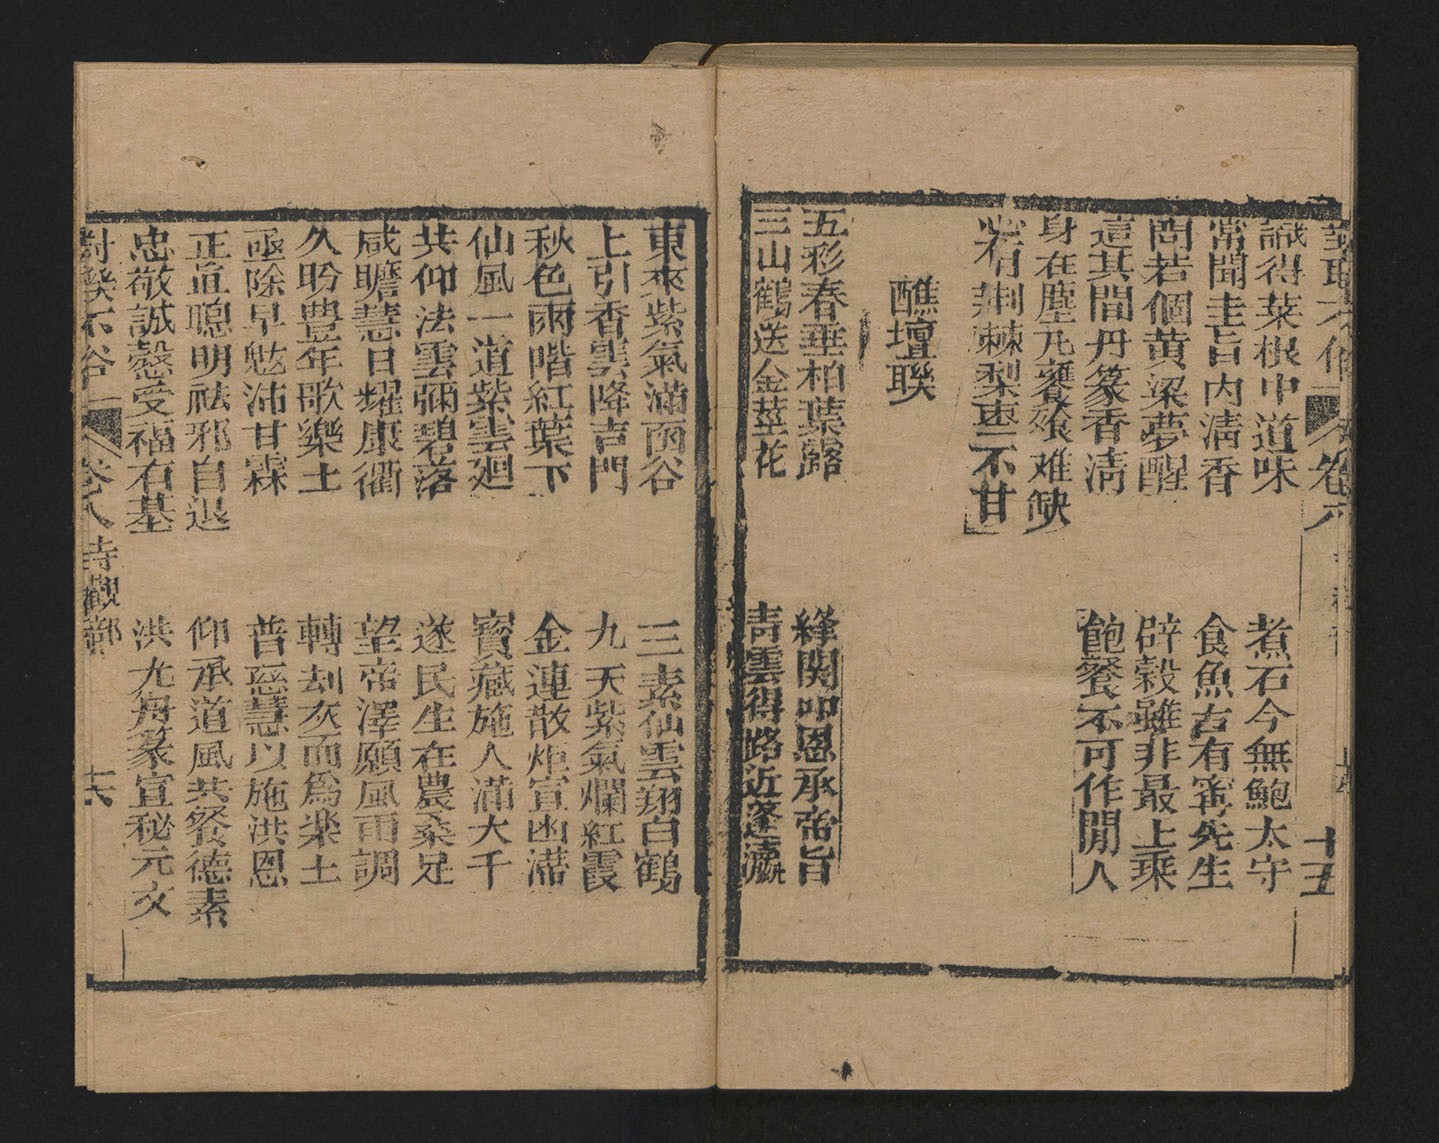 卷六
十五
識得菜根中道味
煮石今無鮑太守
常聞圭旨內清香
食魚古有甯先生
問若個黃粱夢醒
辟穀雖非最上乘
這其間丹篆香清
飽餐不可作閒人
身在塵凡饔飱难缺
若荆棘梨棗二不甘
醮壇聯
五彩春垂柏葉露
絳闕叩恩承帝旨
三山鶴送金莖花
青雲得路近蓬瀛
東來紫氣滿函谷
三素仙雲翔白鶴
上引香雲降吉門
九天紫氣爛紅霞
秋色兩階紅葉下
金蓮散炬宣函藩
仙風一道紫雲廻
寳藏施人滿大千
共仰法雲彌碧落
遂民生在農桑足
咸瞻慧日耀康衢
望帝澤願風雨調
久盼豊年歌樂土
轉刼灰而爲楽土
亟除旱魃沛甘霖
普慈慧以施洪恩
正直聰明祛邪自退
仰承道風共餐德素
忠敬誠慤受福有基
洪尤丹篆宣秘元文
對類不俗 卷八 寺觀部 十六